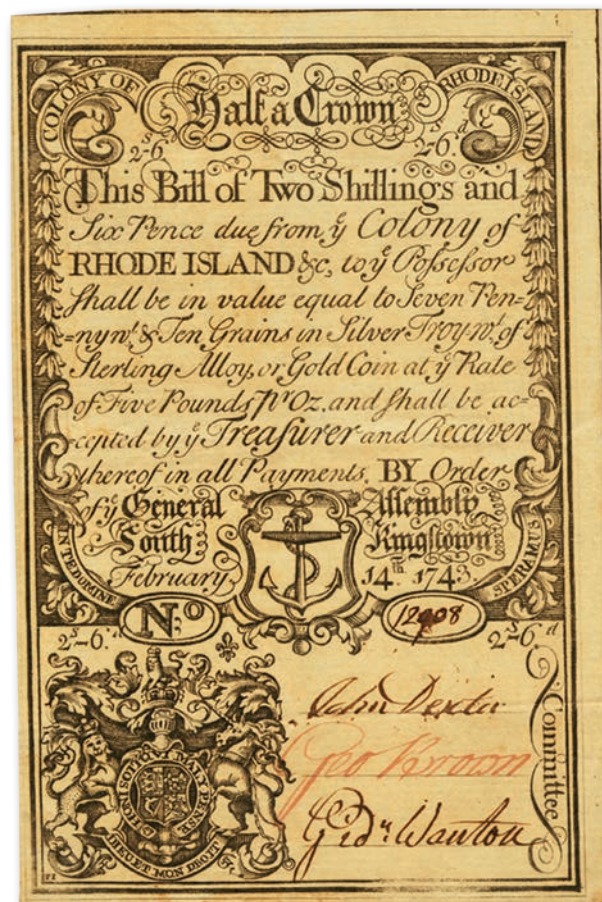 COLONY OF RHODE ISLAND
Half a Crown
2ˢ-6ᵈ 2ˢ-6ᵈ
This Bill of Two Shillings and
Six Pence due from yᵉ Colony of
RHODE ISLAND &c, to yᵉ Poſseſsor
ſhall be in value equal to Seven Pen=
=nywᵗ. & Ten Grains in Silver Troy-wᵗ. of
Sterling Alloy, or Gold Coin at yᵉ Rate
of Five Pounds ⅌ʳ Oz. and ſhall be ac=
cepted by yᵉ Treaſurer and Receiver
thereof in all Payments. BY Order
of yᵉ General Aſſembly
South Kingstown
February 14ᵗʰ 1743.
IN TE DOMINE SPERAMUS
Nº 12908
2ˢ-6ᵈ 2ˢ-6ᵈ
John Dexter
Geo Brown
Gidⁿ Wanton
Committee
HONI SOIT QUI MAL Y PENSE
DIEU ET MON DROIT